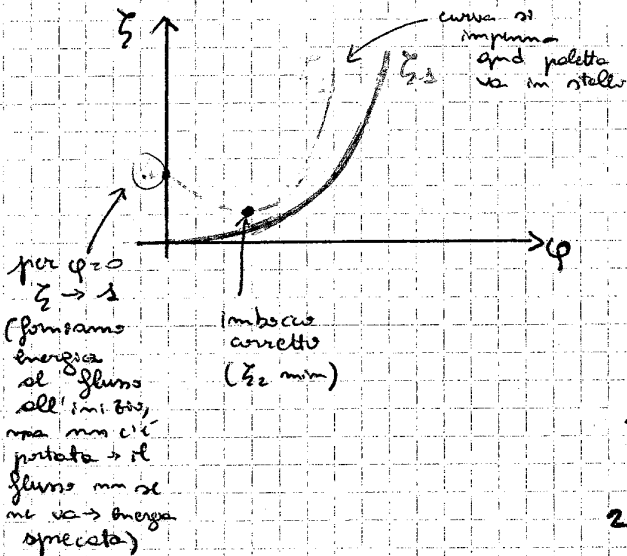 ζ
curva si
impenna
qnd paletta
va in stallo
ζ1
φ
per φ=0
ζ → 1
(forniamo
energia
al flusso
all'inizio,
ma nn c'è
portata → il
flusso nn se
ne va → energia
sprecata)
imbocco
corretto
(ζ2 min)
2